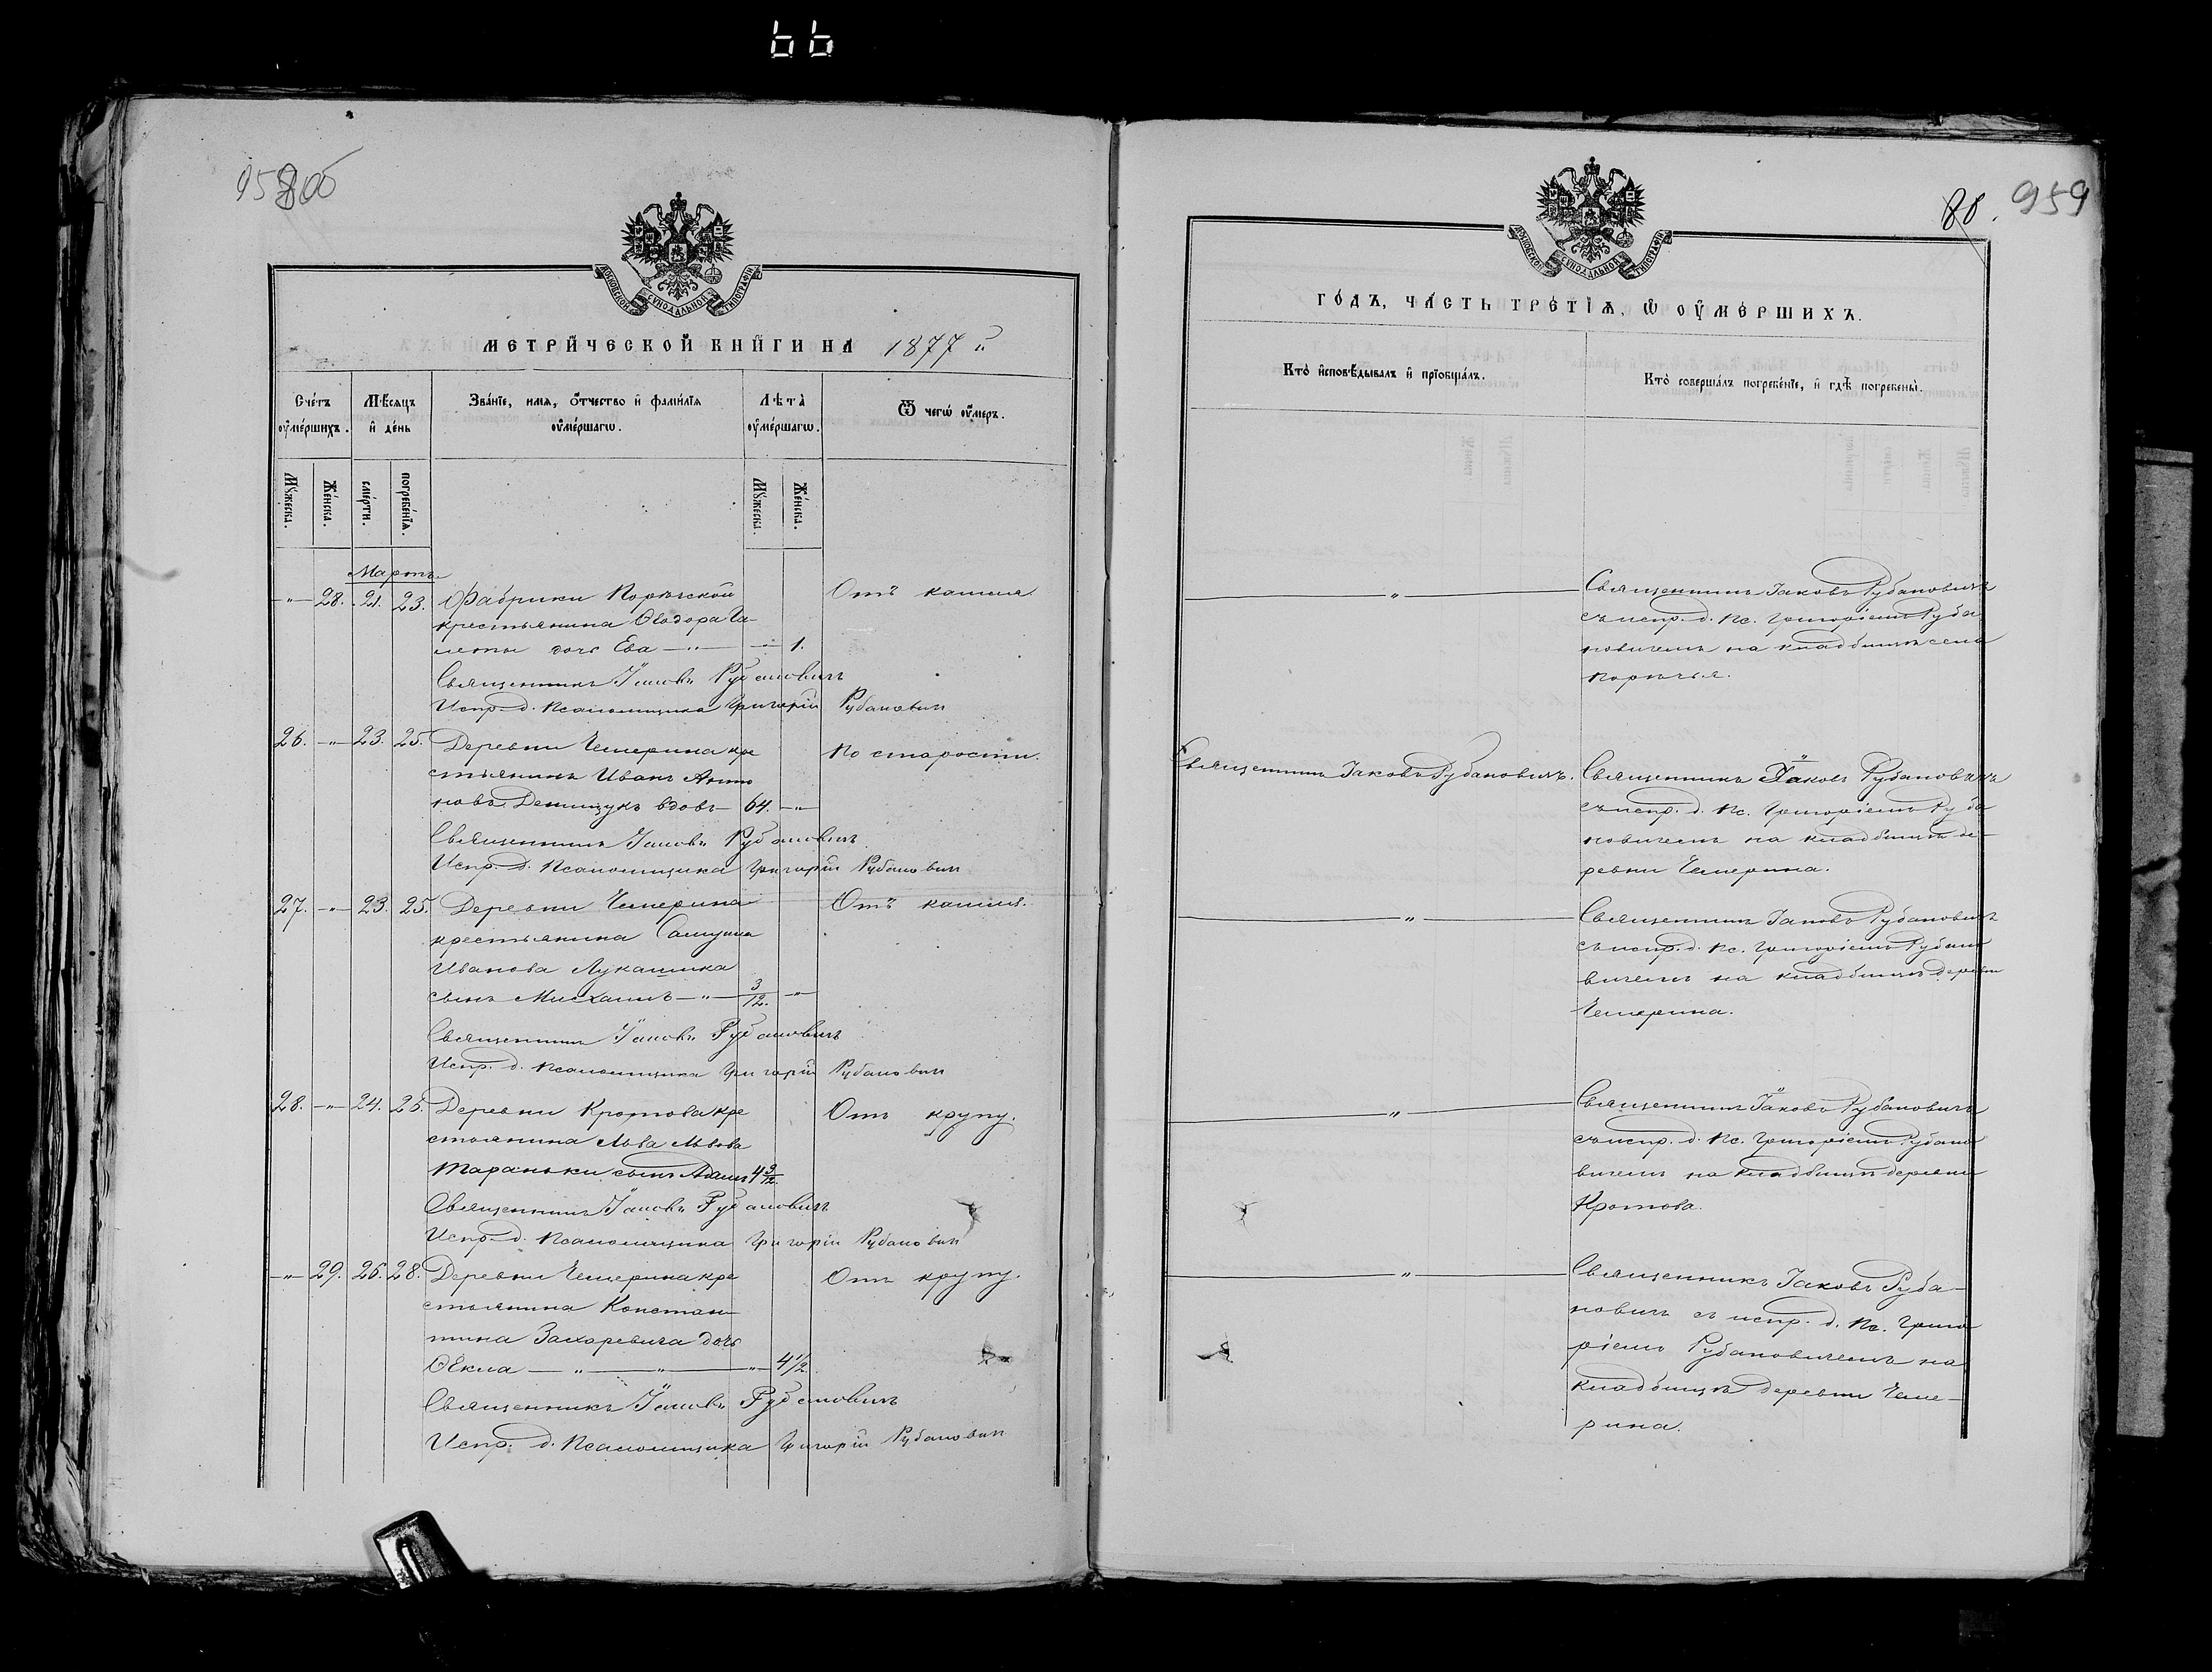 66
958об
88. 959
МОСКОВСКОЙ СѴНОДАЛЬНОЙ ТИПОГРАФІИ
МЕТРИ́ЧЕСКОЙ КНИ́ГИ НА 1877 й
Сче́тъ оу҆ме́ршихъ.
Мѣ́сяцъ и҆ де́нь
Зва́нїе, имя, ѻ҆́тчество и҆ фами́лїя оу҆ме́ршагѡ.
Лѣ́та̀ оу҆ме́ршагѡ.
Ѿ чегѡ̀ оу҆́меръ.
Мꙋ́жеска.
Же́нска.
сме́рти.
погребе́нїѧ.
Мꙋ́жеска.
Же́нска.
Мартъ
-"- 28. 21. 23. Фабрики Порѣчской Отъ кашля.
крестьянина Ѳеодора Га-
леты дочь Ева -"- -"- 1.
Священникъ Іаковъ Рубановичъ
Испр. д. Псаломщика Григорій Рубанович
26. -"- 23. 25. Деревни Чемерина кре По старости.
стьянинъ Иванъ Анто
новъ Денищукъ вдовъ- 64. -"-
Священникъ Іаковъ Рубановичъ
Испр. д. Псаломщика Григорій Рубанович
27. -"- 23. 25. Деревни Чемерина Отъ кашля.
крестьянина Самуила
Иванова Лукашика
сынъ Михаилъ -"- 3/12. -"-
Священникъ Іаковъ Рубановичъ
Испр. д. Псаломщика Григорій Рубанович
28. -"- 24. 25. Деревни Кротова кре Отъ крупу.
стьянина Льва Львова
Тараньки сынъ Адамъ 4 3/12.
Священникъ Іаковъ Рубановичъ
Испр. д. Псаломщика Григорій Рубанович
-"- 29. 26. 28. Деревни Чемерина кре Отъ крупу.
стьянина Констан-
тина Захаревича дочь
Ѳекла -"- -"- -"- 4 1/2.
Священникъ Іаковъ Рубановичъ
Испр. д. Псаломщика Григорій Рубанович
МОСКОВСКОЙ СѴНОДАЛЬНОЙ ТИПОГРАФІИ
ГО́ДЪ, ЧА́СТЬ ТРЕ́ТЇѦ, Ѡ҆ ОУ҆МЕ́РШИХЪ.
Кто̀ и҆сповѣ́дывалъ и҆ прїобща́лъ.
Кто̀ соверша́лъ погребе́нїе, и҆ гдѣ̀ погребены̀.
-"- Священникъ Іаковъ Рубановичъ
съ испр. д. Пс. Григоріемъ Руба
новичемъ на кладбищѣ села
Порѣчья.
Священникъ Іаковъ Рубановичъ. Священникъ Іаковъ Рубановичъ
съ испр. д. Пс. Григоріемъ Руба
новичемъ на кладбищѣ де-
ревни Чемерина.
-"- Священникъ Іаковъ Рубановичъ
съ испр. д. Пс. Григоріемъ Рубано
вичемъ на кладбищѣ деревни
Чемерина.
-"- Священникъ Іаковъ Рубановичъ
съ испр. д. Пс. Григоріемъ Рубано
вичемъ на кладбищѣ деревни
Кротова.
-"- Священникъ Іаковъ Руба-
новичъ съ испр. д. Пс. Григо
ріемъ Рубановичемъ на
кладбищѣ деревни Чеме-
рина.